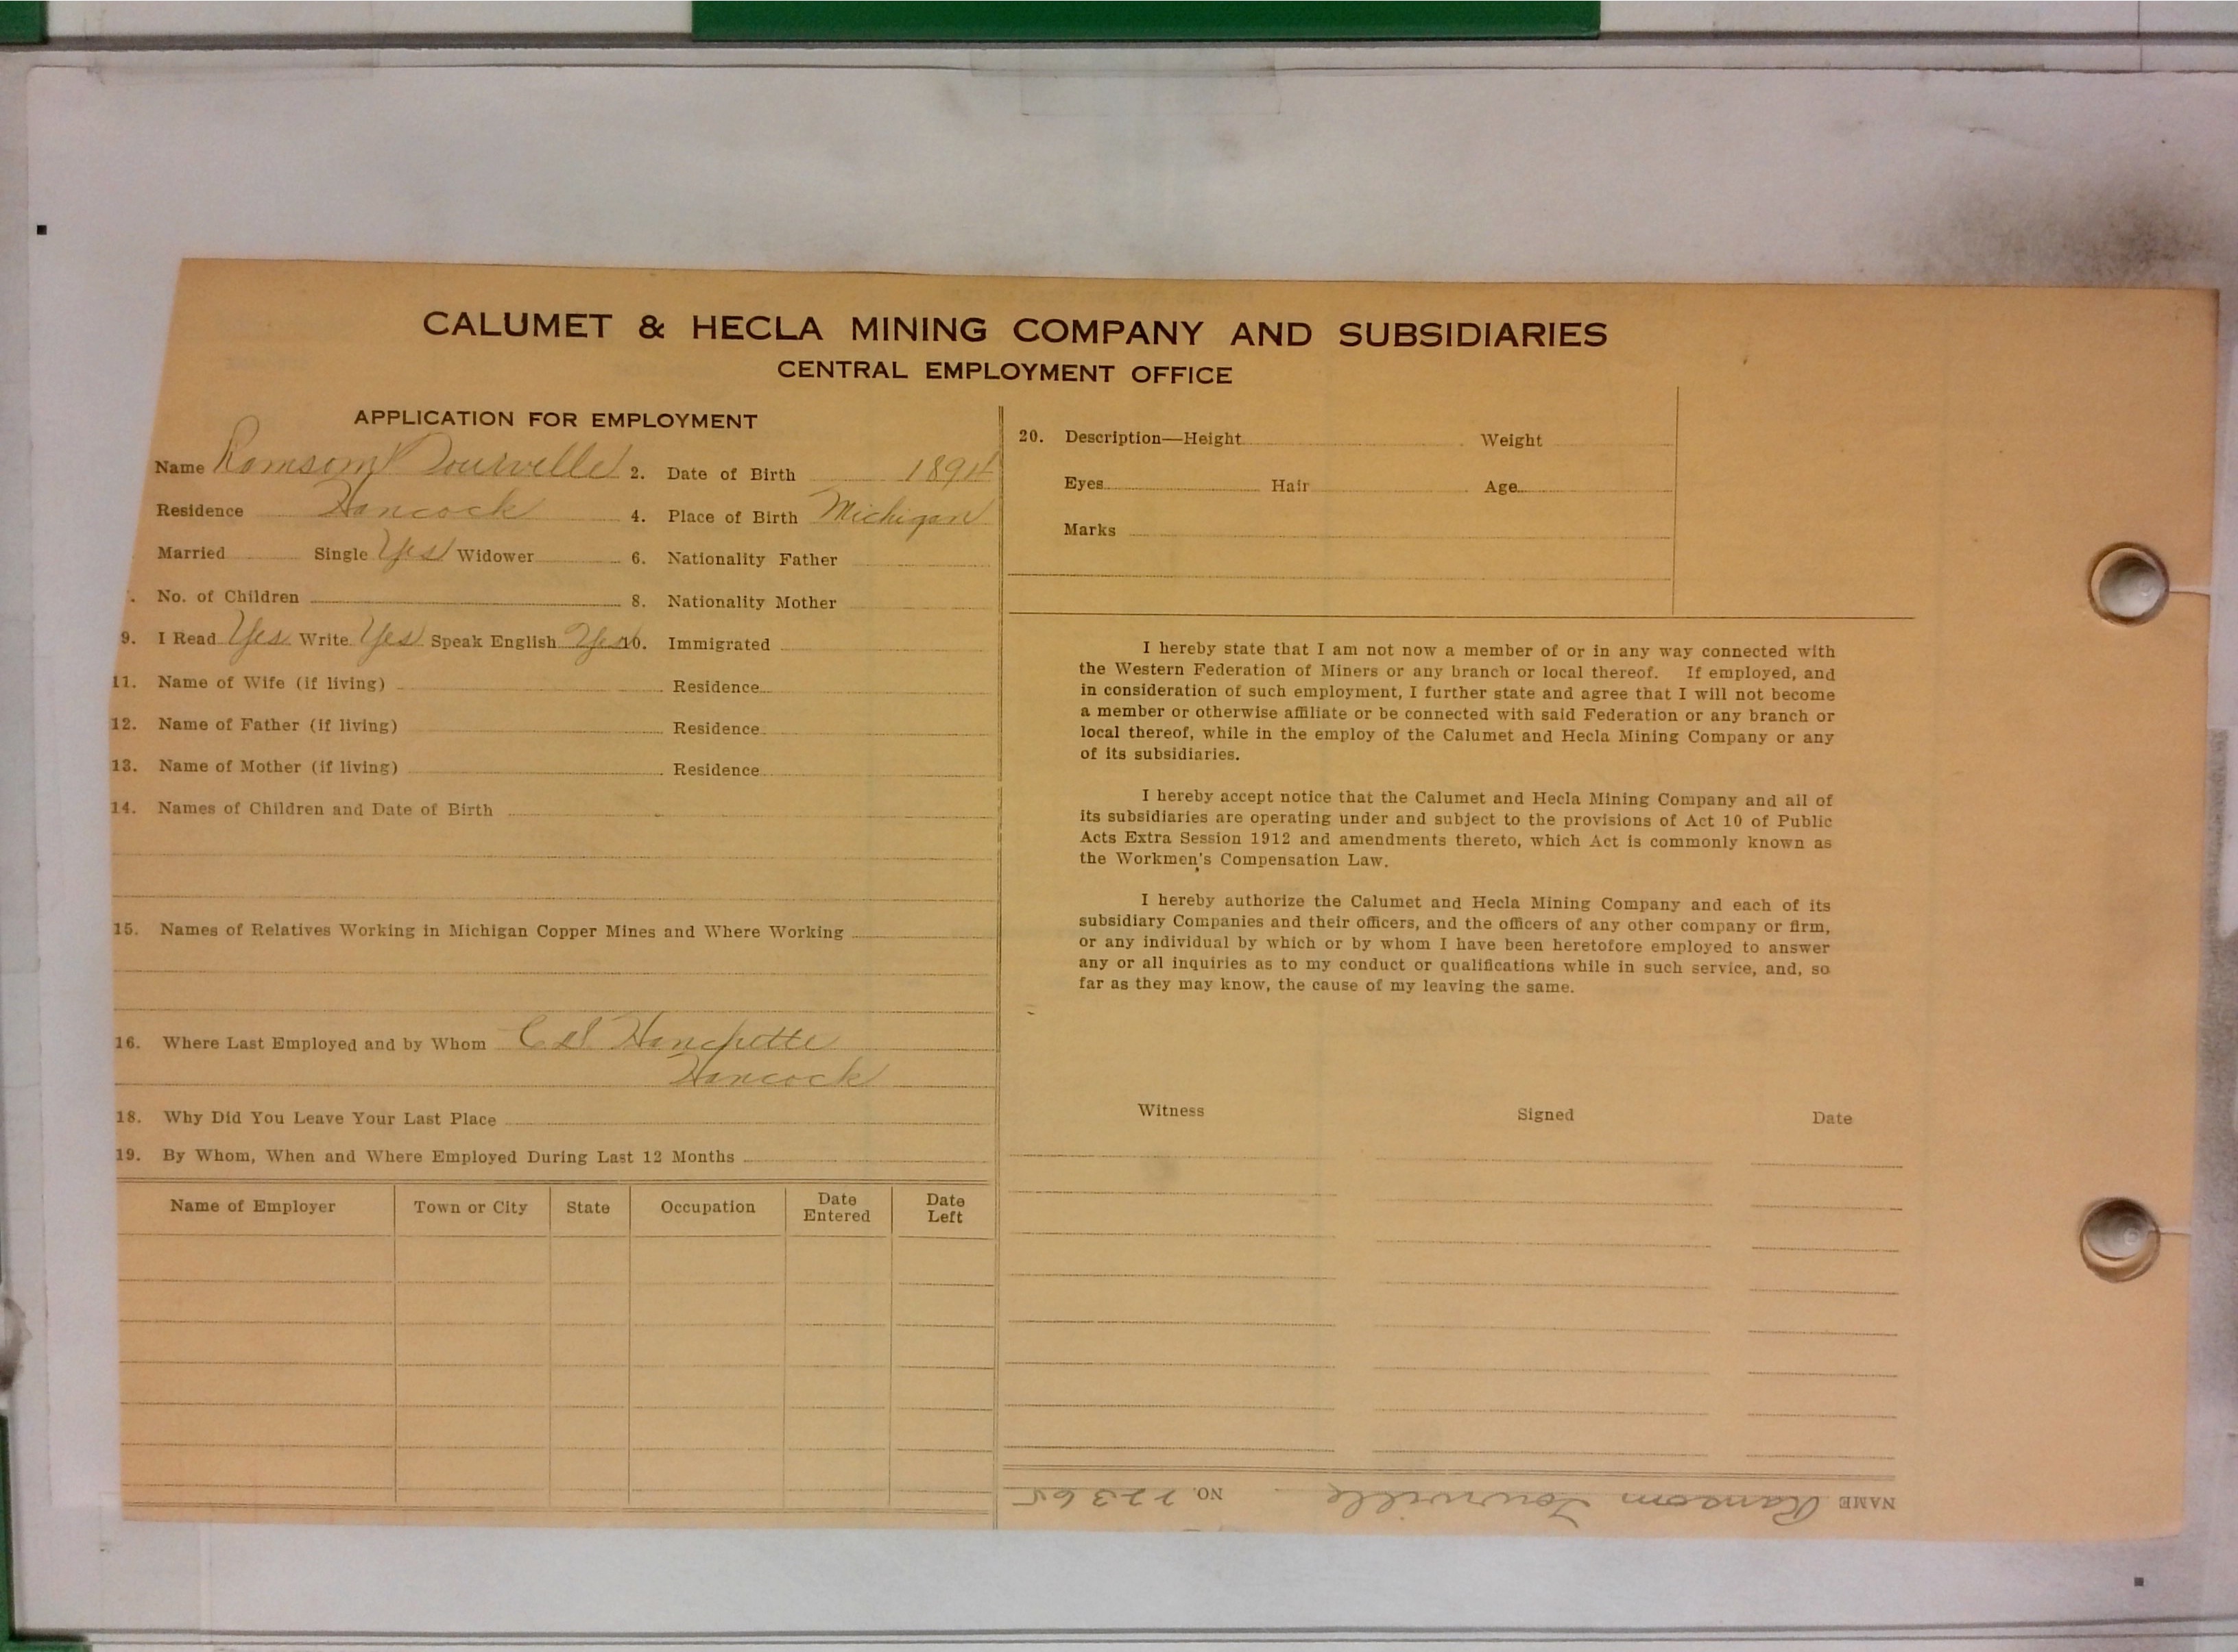 CALUMET & HECLA MINING COMPANY AND SUBSIDIARIES
CENTRAL EMPLOYMENT OFFICE
APPLICATION FOR EMPLOYMENT
Name Ramsom Tourville 2. Date of Birth 1894
Residence Hancock 4. Place of Birth Michigan
Married Single Yes Widower 6. Nationality Father
No. of Children 8. Nationality Mother
9. I Read Yes Write Yes Speak English Yes 10. Immigrated
11. Name of Wife (if living) Residence
12. Name of Father (if living) Residence
13. Name of Mother (if living) Residence
14. Names of Children and Date of Birth
15. Names of Relatives Working in Michigan Copper Mines and Where Working
16. Where Last Employed and by Whom Hanchette
Hancock
18. Why Did You Leave Your Last Place
19. By Whom, When and Where Employed During Last 12 Months
Name of Employer Town or City State Occupation Date Entered Date Left
20. Description—Height Weight
Eyes Hair Age
Marks
I hereby state that I am not now a member of or in any way connected with
the Western Federation of Miners or any branch or local thereof. If employed, and
in consideration of such employment, I further state and agree that I will not become
a member or otherwise affiliate or be connected with said Federation or any branch or
local thereof, while in the employ of the Calumet and Hecla Mining Company or any
of its subsidiaries.
I hereby accept notice that the Calumet and Hecla Mining Company and all of
its subsidiaries are operating under and subject to the provisions of Act 10 of Public
Acts Extra Session 1912 and amendments thereto, which Act is commonly known as
the Workmen's Compensation Law.
I hereby authorize the Calumet and Hecla Mining Company and each of its
subsidiary Companies and their officers, and the officers of any other company or firm,
or any individual by which or by whom I have been heretofore employed to answer
any or all inquiries as to my conduct or qualifications while in such service, and, so
far as they may know, the cause of my leaving the same.
Witness Signed Date
NAME Ransom Tourville NO. 22365